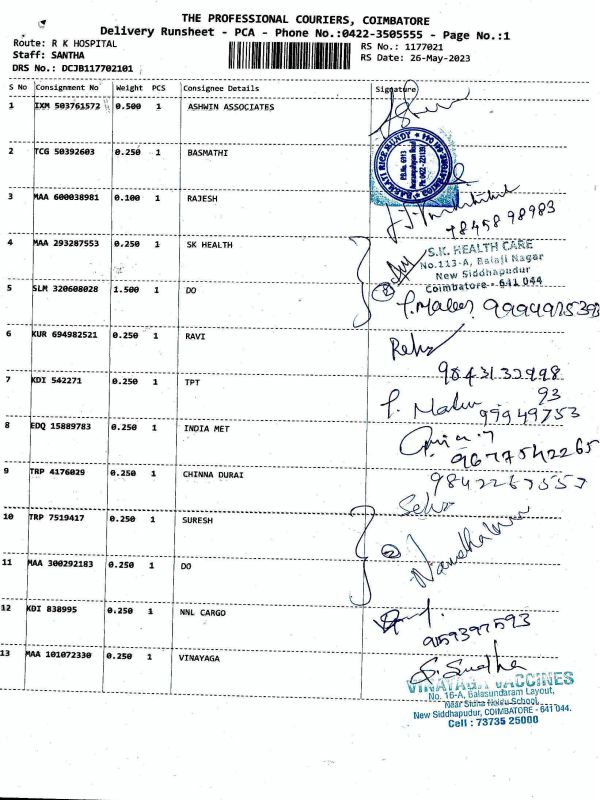 THE PROFESSIONAL COURIERS, COIMBATORE
Delivery Runsheet - PCA - Phone No.:0422-3505555 - Page No.:1
Route: R K HOSPITAL
RS No.: 1177021
Staff: SANTHA
RS Date: 26-May-2023
DRS No.: DCJB117702101
S No Consignment No Weight PCS Consignee Details Signature
1 IXM 503761572 0.500 1 ASHWIN ASSOCIATES
2 TCG 50392603 0.250 1 BASMATHI
BASMATI RICE MUNDY
3 MAA 600038981 0.100 1 RAJESH
78458 98983
4 MAA 293287553 0.250 1 SK HEALTH
S.K. HEALTH CARE
No.113-A, Balaji Nagar
New Siddhapudur
Coimbatore - 641 044
5 SLM 320608028 1.500 1 DO
2
6 KUR 694982521 0.250 1 RAVI
7 KDI 542271 0.250 1 TPT
8 EDQ 15889783 0.250 1 INDIA MET
9677542265
9 TRP 4176029 0.250 1 CHINNA DURAI
10 TRP 7519417 0.250 1 SURESH
2
11 MAA 300292183 0.250 1 DO
12 KDI 838995 0.250 1 NNL CARGO
13 MAA 101072330 0.250 1 VINAYAGA
S. Sudha
VINAYAGA VACCINES
No. 16-A, Balasundaram Layout,
New Siddhapudur, COIMBATORE - 641 044.
Cell : 73735 25000